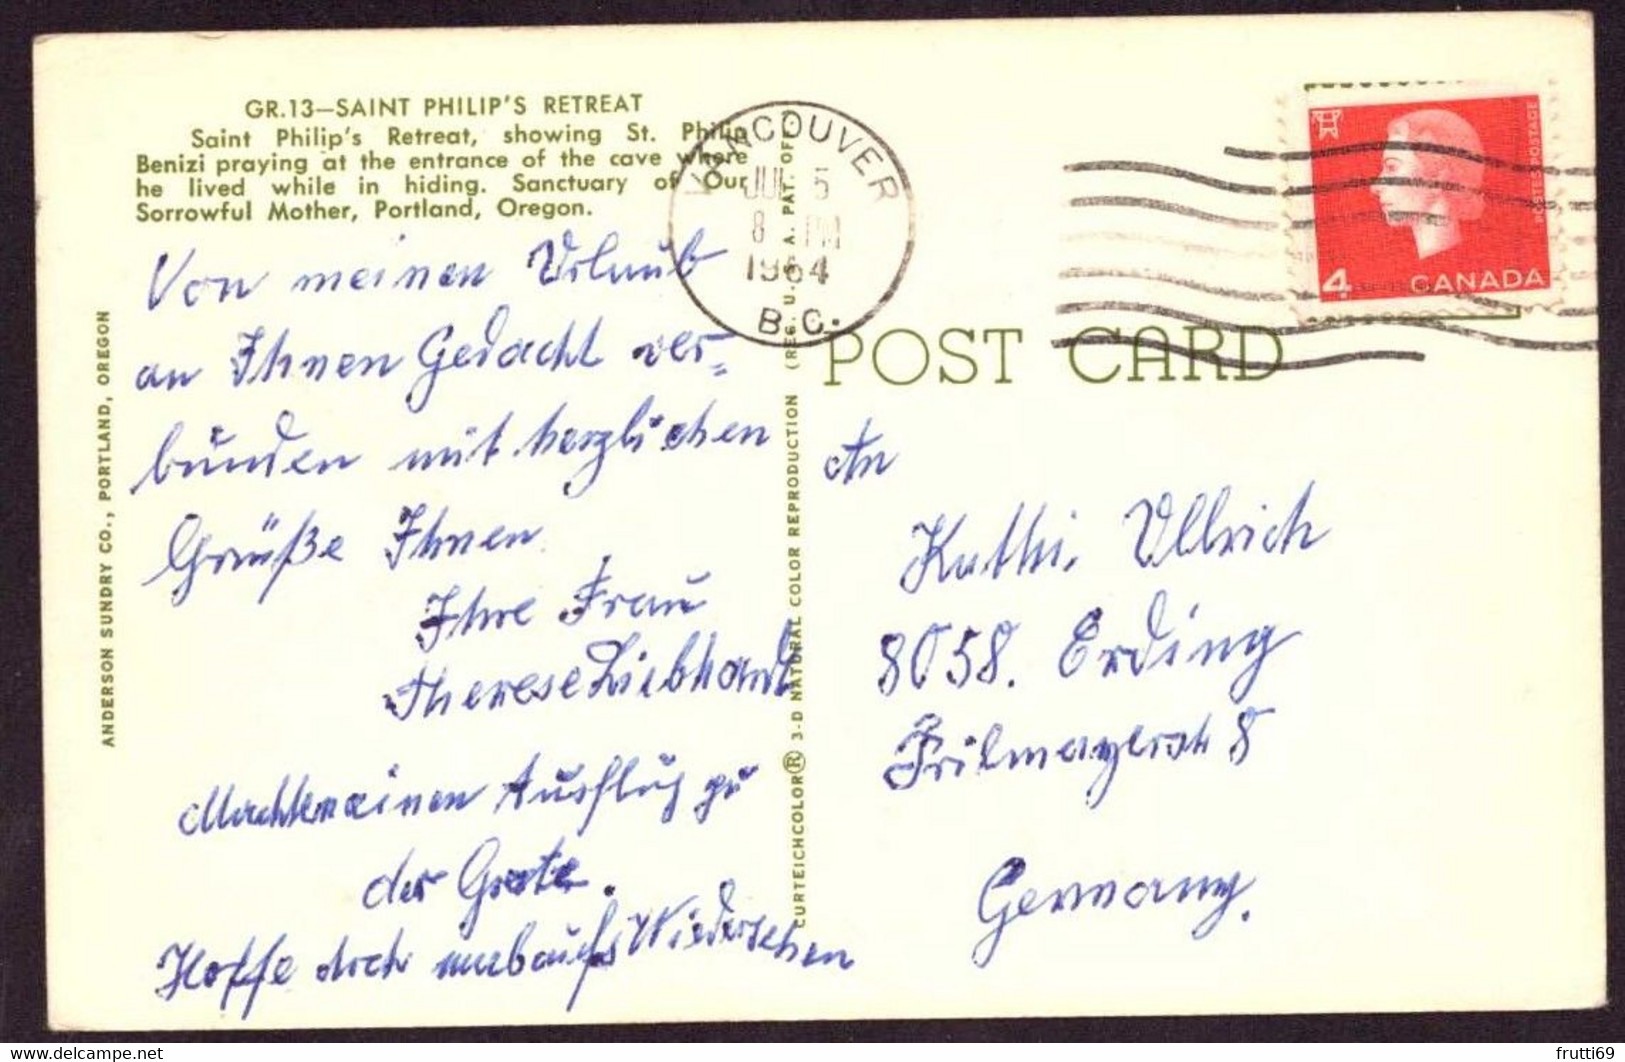 GR.13—SAINT PHILIP'S RETREAT
Saint Philip's Retreat, showing St. Philip
Benizi praying at the entrance of the cave where
he lived while in hiding. Sanctuary of Our
Sorrowful Mother, Portland, Oregon.
Von meinen Urlaub
an Ihnen Gedacht ver=
bunden mit herzlichen
Grüße Ihnen
Ihre Frau
Therese Liebhardt
Machten einen Ausflug zu
der Grotte.
Hoffe doch aufs Wiedersehen
ANDERSON SUNDRY CO., PORTLAND, OREGON
CURTEICHCOLOR® 3-D NATURAL COLOR REPRODUCTION (REG. U.S.A. PAT. OFF.)
VANCOUVER
JUL 5
8 PM
1964
B.C.
POSTES POSTAGE
4 CANADA
POST CARD
An
Kathi. Ullrich
8058. Erding
8
Germany.
frutti69